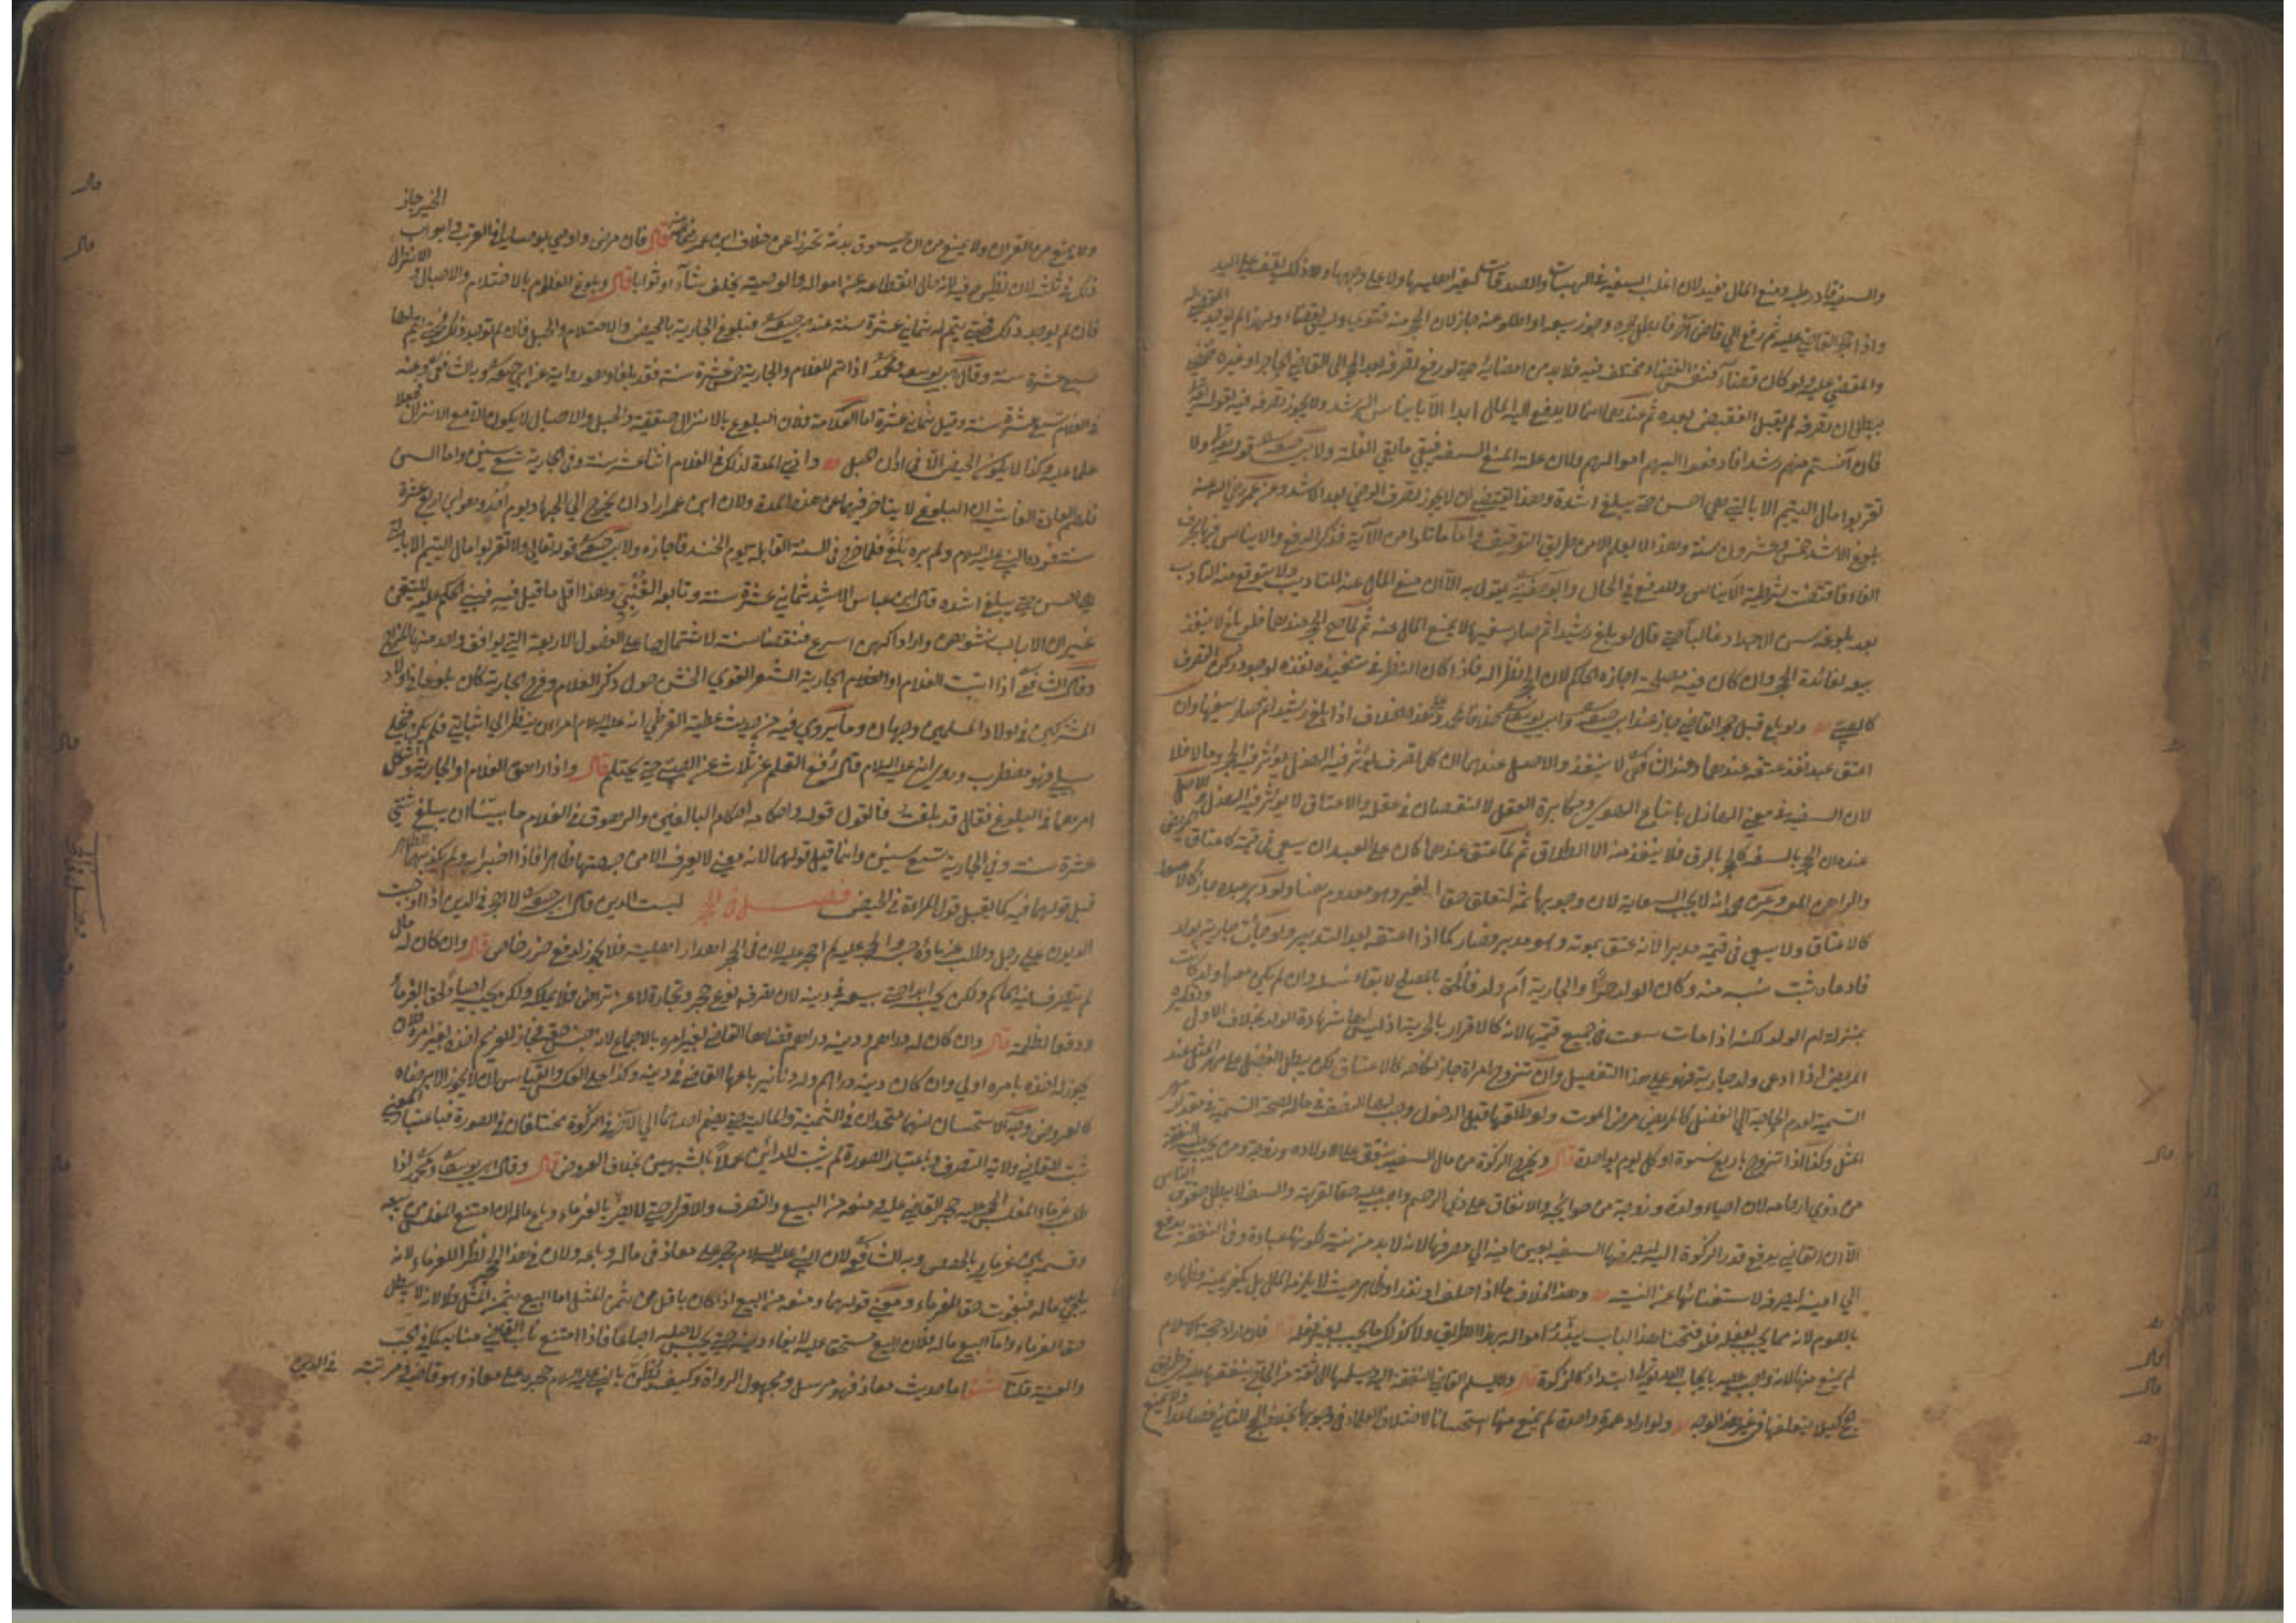 والسفيه قادر عليه ومنع المال مفيد لان اغلب السفيه في الهبات والصدقات
واذا حجر القاضي عليه ثم رفع الي قاض آخر فابطل حجره وجوز بيعه او اطلق عنه جاز لان الحجر منه فتوي وليس بقضاء ولهذا لم يوجد المقضي له
والمقضي عليه ولو كان قضاء فنفس القضاء مختلف فيه فلا بد من امضائه حتي لو رفع تصرفه بعد الحجر الي القاضي الحاجر او غيره فقضي
ببطلان تصرفه لا يقبل النقض بعده ثم عندهما لا يدفع اليه المال ابدا الا بايناس الرشد ولا يجوز تصرفه فيه لقوله تعالي
فان آنستم منهم رشدا فادفعوا اليهم اموالهم ولان علة المنع السفه فيبقي ما بقي العلة ولابي حنيفة قوله تعالي ولا
تقربوا مال اليتيم الا بالتي هي احسن حتي يبلغ اشده وهذا يقتضي ان لا يجوز تصرف الوصي بعد الاشد وعن عمر رضي الله عنه
بلوغ الاشد خمس وعشرون سنة وهذا لا يعلم الا من طريق التوقيف واما ما تلوا من الآية فذكر الدفع والايناس فيها بحرف
الفاء فاقتضت شرطية الايناس وللدفع في الحال وابو حنيفة يقول به الا ان منع المال عنه للتاديب ولا يتوقع منه التادب
بعد بلوغه سن الاجداد غالبا حتي قال لو بلغ رشيدا ثم صار سفيها لا يمنع المال عنه ثم لما صح الحجر عندهما فلو باع لا ينفذ
بيعه لفائدة الحجر وان كان فيه مصلحة اجازه الحاكم لان الحجر لنظر اله فاذا كان النظر في تنفيذه نفذه لوجود ركن التصرف
كالصبي ولو باع قبل حجر القاضي جاز عند ابي يوسف خلافا لمحمد وعلي هذا الخلاف اذا بلغ رشيدا ثم صار سفيها وان
اعتق عبدا نفذ عتقه عندهما وعند الشافعي لا ينفذ والاصل عندهما ان كل تصرف يؤثر فيه الهزل يؤثر فيه الحجر وما لا فلا
لان السفيه في معني الهازل باتباع الهوي ومكابرة العقل لا لنقصان في عقله والاعتاق لا يؤثر فيه الهزل والاصل
عنده ان الحجر بالسفه كالحجر بالرق فلا ينفذ منه الا الطلاق ثم لما عتق عندهما كان علي العبد ان يسعي في قيمته كاعتاق المريض
والراهن المعسر وعن محمد انه لا يجب السعاية لان وجوبها ثمه لتعلق حق الغير وهو معدوم هنا ولو دبر عبده جاز
كالاعتاق ولا يسعي في قيمته مدبرا لانه عتق بموته وهو مدبر فصار كما اذا اعتقه بعد التدبير ولو جاءت جارية بولد
فادعاه ثبت نسبه منه وكان الولد حرا والجارية ام ولد فالحق بالمصلح لابقاء نسله وان لم يكن معها ولد كانت
بمنزلة ام الولد لكنه اذا مات سعت في جميع قيمتها لانه كالاقرار بالحرية اذ ليس لها شهادة الولد بخلاف الاول ونظيره
المريض اذا ادعي ولد جارية فهو علي هذا التفصيل وان تزوج امراة جاز نكاحه كالاعتاق لكن يبطل الفضل علي مهر المثل عند
التسمية لعدم الحاجة الي الفضل كالمريض مرض الموت ولو طلقها قبل الدخول وجب لها النصف في ماله لصحة التسمية في مقدار مهر
المثل وكذا اذا تزوج باربع نسوة او كل يوم بواحدة قال ويخرج الزكوة من مال السفيه وينفق علي اولاده وزوجته ومن يجب نفقته
من ذوي ارحامه لان احياء ولده وزوجته من حوائجه والانفاق علي ذي الرحم واجب عليه حقا لقرابته والسفه لا يبطل حقوق الناس
الا ان القاضي يدفع قدر الزكوة اليه ليصرفها السفيه يعين امينه الي مصرفها لانه لا بد من نيته لكونها عبادة وفي النفقة يدفع
الي امينه ليصرفه لاستغنائها عن النية وهذا بخلاف ما اذا حلف او نذر او ظاهر حيث لا يلزمه المال بل يكفر يمينه وظهاره
بالصوم لانه مما يجب بفعله فلو فتحنا هذا الباب يبذر امواله بهذا الطريق ولا كذلك ما يجب بغير فعله قال فان اراد حجة الاسلام
لم يمنع منها لانه واجب عليه بايجاب الله تعالي ابتداء كالزكوة قال ولا يسلم القاضي النفقة اليه ويسلمها الي ثقة من الحاج ينفقها عليه في طريق
الحج كيلا يتلفها في غير هذا الوجه ولو اراد عمرة واحدة لم يمنع منها استحسانا لاختلاف العلماء في وجوبها بخلاف الحج الثاني فصاعدا ولا يمنع
ولا يمنع من القران ولا يمنع من ان يسوق بدنة تحرزا عن خلاف ابن عمر قال فان مرض واوصي بوصايا في القرب وابواب الخير جاز
ذلك في ثلثه لان نظره فيه اذ هي حال انقطاعه عن امواله والوصية يخلف ثناء او ثوابا قال وبلوغ الغلام بالاحتلام والاحبال والانزال
فان لم يوجد ذلك فحتي يتم له ثماني عشرة سنة عند ابي حنيفة وبلوغ الجارية بالحيض والاحتلام والحبل فان لم توجد ذلك فحتي يتم لها
سبع عشرة سنة وقال ابو يوسف ومحمد اذا تم للغلام والجارية خمس عشرة سنة فقد بلغا وهو رواية عن ابي حنيفة وبه الشافعي وعنه
في الغلام تسع عشرة سنة وقيل ثمان عشرة اما العلامة فلان البلوغ بالانزال حقيقة والحبل والاحبال لا يكون الا مع الانزال فجعلا
علما عليه وكذا لا يكون الحيض الا في اوان الحبل وادني المدة لذلك في الغلام اثنا عشر سنة وفي الجارية تسع سنين واما السن
فلهم العادة الفاشية ان البلوغ لا يتاخر فيهما عن هذه المدة ولان ابن عمر اراد ان يخرج الي الجهاد يوم احد وهو ابن اربع عشرة
سنة فرده النبي عليه السلام ولم يره بلغ فلما خرج في السنة القابلة يوم الخندق اجازه ولابي حنيفة قوله تعالي ولا تقربوا مال اليتيم الا بالتي
هي احسن حتي يبلغ اشده قال ابن عباس الاشد ثماني عشرة سنة وتابعه القتبي وهذا اقل ما قيل فيه فيبني الحكم عليه للتيقن
غير ان الاناث نشوهن وادراكهن اسرع فنقصنا سنة لاشتمالها علي الفصول الاربعة التي يوافق واحد منها المزاج
وقال الشافعي اذا انبت الغلام او الجارية الشعر القوي الخشن حول ذكر الغلام وفرج الجارية كان بلوغا في اولاد
المشركين وفي اولاد المسلمين وجهان وما يروي فيه من حديث عطية القرظي انه عليه السلام امر ان ينظر الي
سبيله فهو مضطرب وروي انه عليه السلام قال رفع القلم عن ثلاث عن الصبي حتي يحتلم قال واذا راهق الغلام او الجارية واشكل
امرهما في البلوغ فقال قد بلغت فالقول قوله واحكامه احكام البالغين والرهوق في الغلام ما بينا ان يبلغ اثنتي
عشرة سنة وفي الجارية تسع سنين وانما قبل قولهما لانه معني لا يعرف الا من جهتهما ظاهرا فاذا اخبرا به ولم يكذبهما الظاهر
قبل قولهما فيه كما يقبل قول المراة في الحيض فصل في الحجر بسبب الدين قال ابو حنيفة لا احجر في الدين اذا وجبت
الديون علي رجل وطلب غرماؤه حبسه والحجر عليه لم احجر عليه لان في الحجر اهدار اهليته فلا يجوز لدفع ضرر خاص قال وان كان له مال
لم يتصرف فيه الحاكم ولكن يحبسه ابدا حتي يبيعه في دينه لان تصرفه نوع حجر وتجارة لا عن تراض فلا يملكه ولكن يحبسه ايفاء لحق الغرماء
ودفعا لظلمه قال وان كان له دراهم ودينه دراهم قضاها القاضي بغير امره بالاجماع لانه جنس حقه فجاز للغريم اخذه بغير امره فلان
يجوز له اخذه بامره اولي وان كان دينه دراهم وله دنانير باعها القاضي في دينه وكذا علي العكس والقياس ان لا يجوز الا برضاه
كالعروض وجه الاستحسان انهما متحدان في الثمنية والمالية حتي يضم احدهما الي الآخر في الزكوة مختلفان في الصورة فباعتبار المعني
يثبت للقاضي ولاية التصرف وباعتبار الصورة لم يثبت للدائن عملا بالشبهين بخلاف العروض قال وقال ابو يوسف ومحمد اذا
طلب غرماء المفلس الحجر عليه حجر القاضي عليه ومنعه من البيع والتصرف والاقرار حتي لا يضر بالغرماء وباع ماله ان امتنع المفلس من بيعه
وقسمه بين غرمائه بالحصص وبه الشافعي لان النبي عليه السلام حجر علي معاذ في ماله وباعه ولان في هذا الحجر نظرا للغرماء لانه
يلجئ ماله فيفوت حق الغرماء ومعني قولهما ومنعه من البيع اذا كان باقل من ثمن المثل اما البيع بثمن المثل فلا لانه لا يبطل
حق الغرماء واما البيع ماله فلان البيع مستحق عليه لايفاء دينه حتي يحبس لاجله اجماعا فاذا امتنع ناب القاضي منابه كما في الجب
والعنة قلنا اما حديث معاذ فهو مرسل ومجهول الرواة وكيف يظن بالنبي عليه السلام حجره علي معاذ وهو قاض في مرتبته في الدين